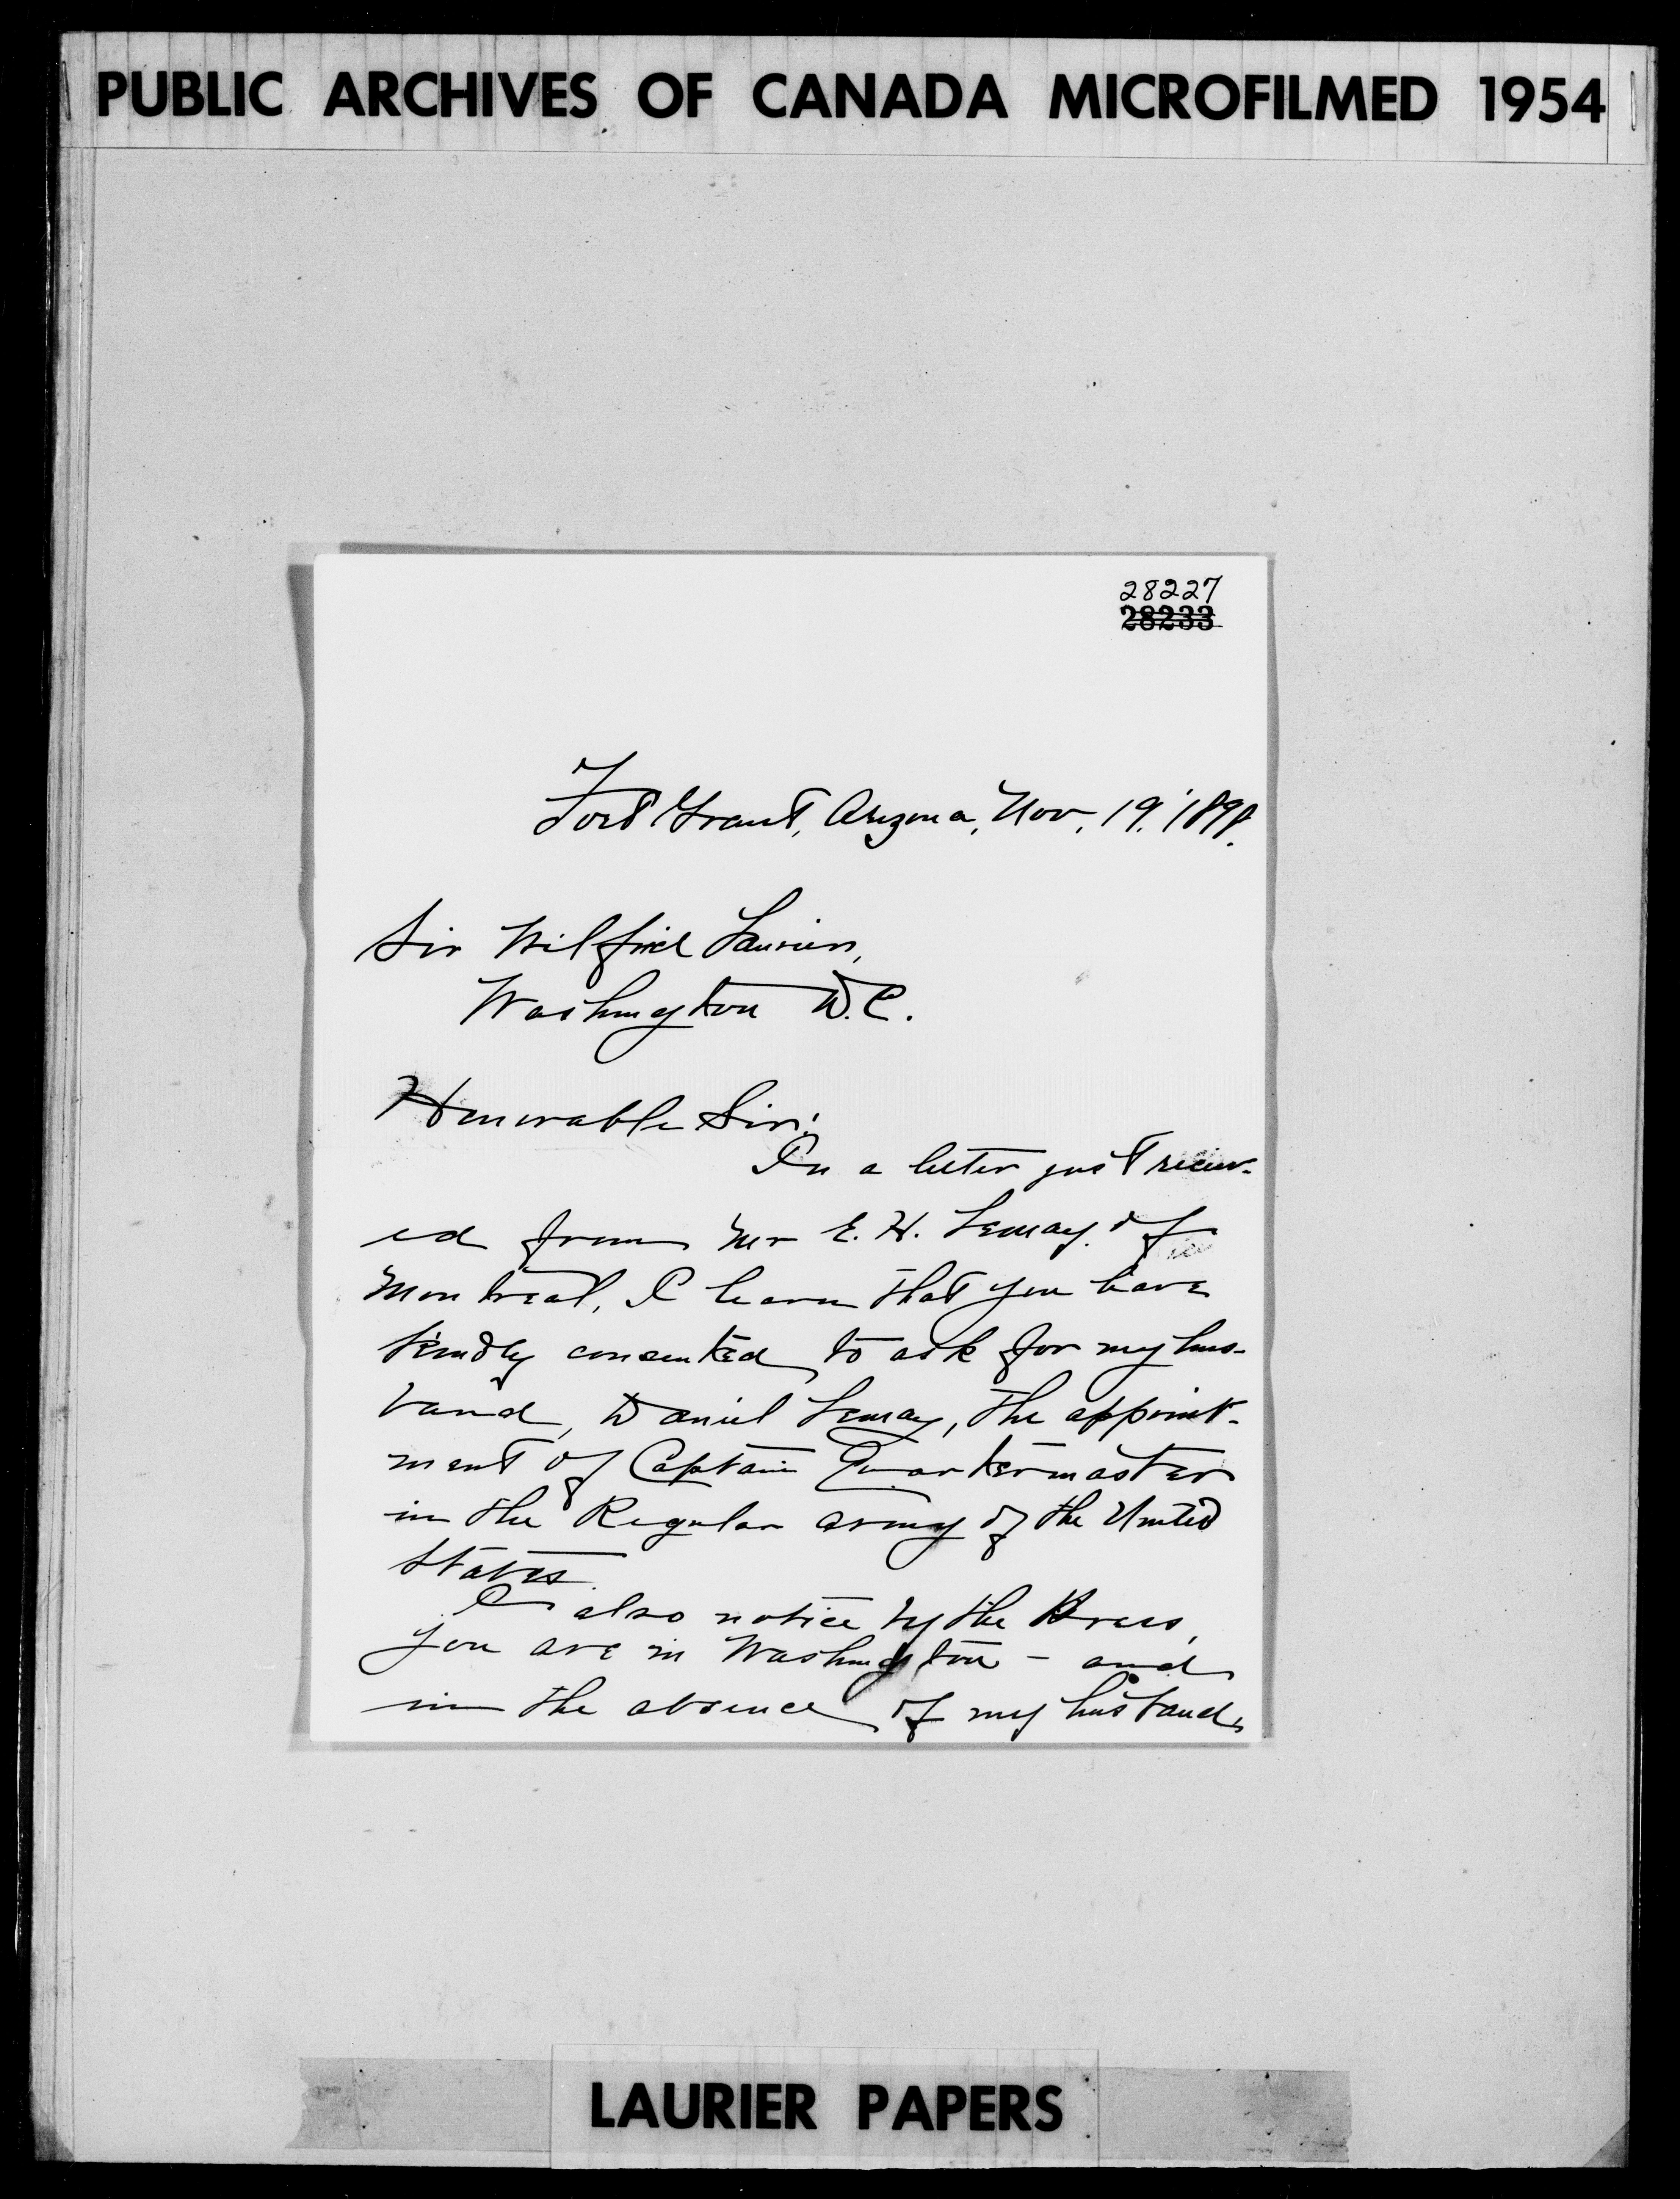 PUBLIC ARCHIVES OF CANADA MICROFILMED 1954
28227
28233
Fort Grant, Arizona, Nov. 19. 1898.
Sir Wilfrid Laurier,
Washington D.C.
Honorable Sir:
In a letter just receiv-
ed from Mr E. H. Lemay of
Montreal, I learn that you have
kindly consented to ask for my hus-
band, Daniel Lemay, the appoint-
ment of Captain Quartermaster
in the Regular army of the United
States.
I also notice by the Press,
you are in Washington - and
in the absence of my husband,
LAURIER PAPERS